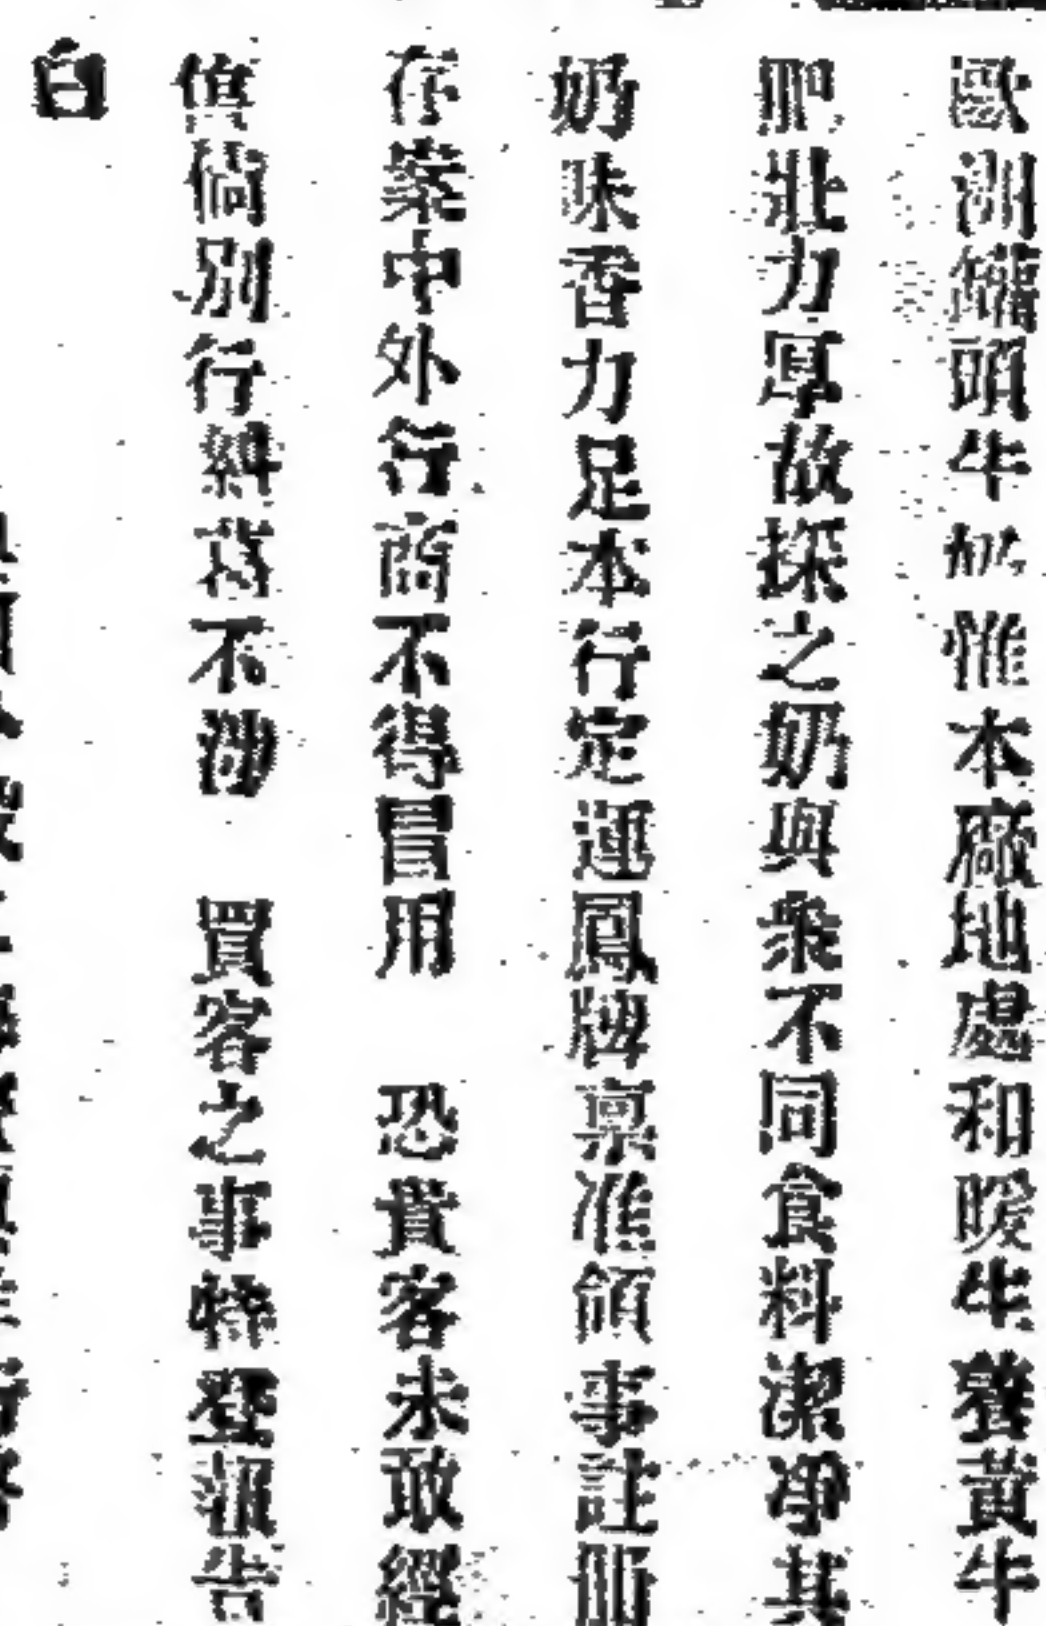 歐洲罐頭牛奶惟本廠地處和暖牛養黃牛
肥壯力厚故採之奶與衆不同食料潔凈其
奶味香力足本行定運鳳牌稟准領事註冊
存案中外行商不得冒用 恐貴客未敢經
售倘別行糾葛不涉 買客之事特登報告
白